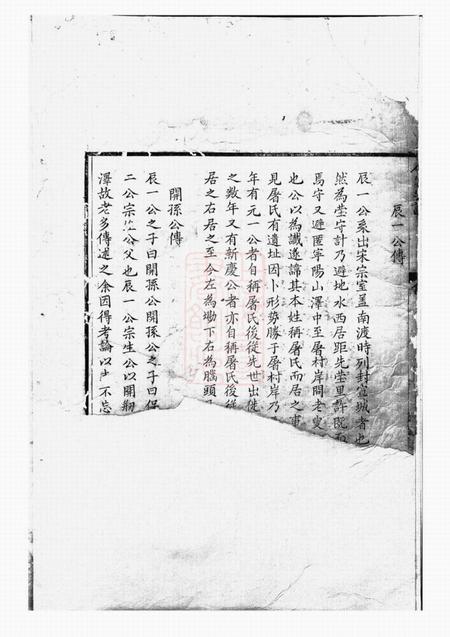 辰一公傳
辰一公系出宋宗室蓋南渡時列封宣城者也
然為塋守計乃避地水西居距先塋里許既而
焉守又避匿寧陽山澤中至屠村岸間老叟
也公以為讖遂諱其本姓稱屠氏而居之事
見屠氏有遺址因卜形勢勝于屠村岸乃
年有元一公者自稱屠氏後從先世出徙
之數年又有新慶公者亦自稱屠氏後
居之右居之至今左為墈下右為腦頭
開孫公傳
辰一公之子曰開孫公開孫公之子曰保
二公宗公父也辰一公宗生公以開
澤故老多傳述之余因得考論以不忘